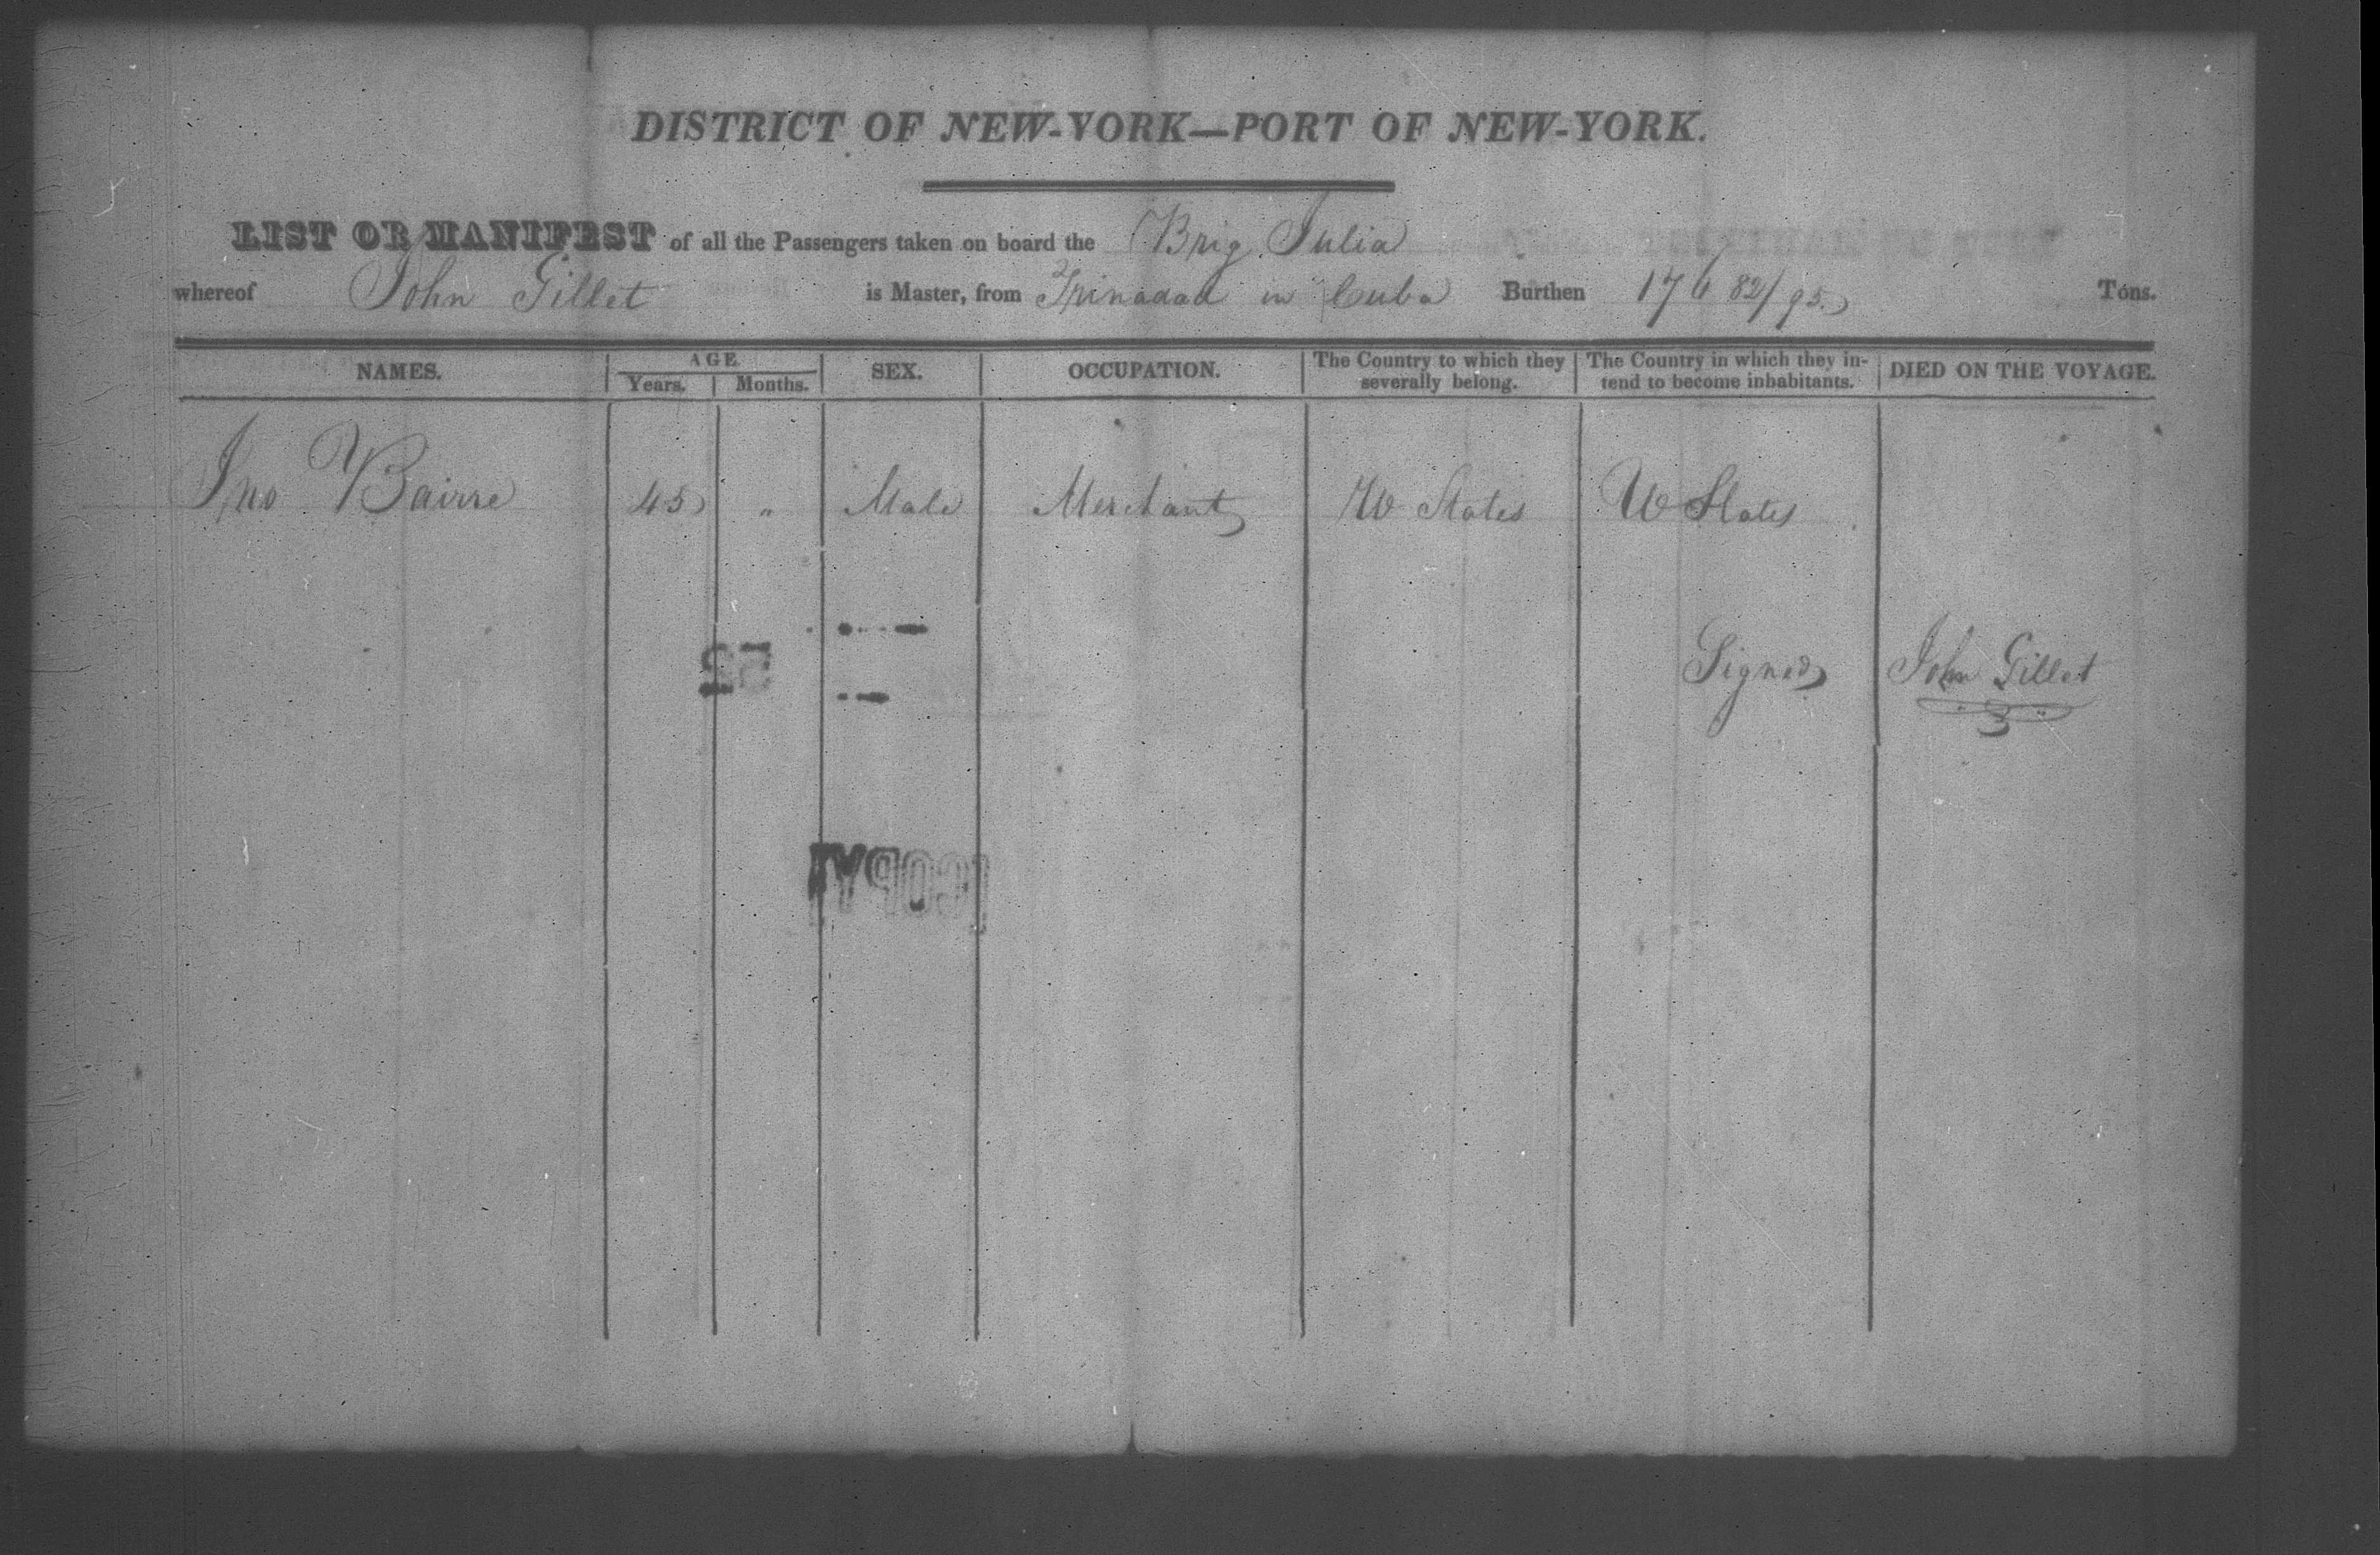 DISTRICT OF NEW-YORK—PORT OF NEW-YORK.
LIST OR MANIFEST of all the Passengers taken on board the Brig Julia
whereof John Gillet is Master, from Trinadad in Cuba Burthen 176 82/95 Tons.
NAMES. AGE. Years. Months. SEX. OCCUPATION. The Country to which they severally belong. The Country in which they intend to become inhabitants. DIED ON THE VOYAGE.
Jno Bairre 45 " Male Merchant U States U States
Signed John Gillet
52
COPY